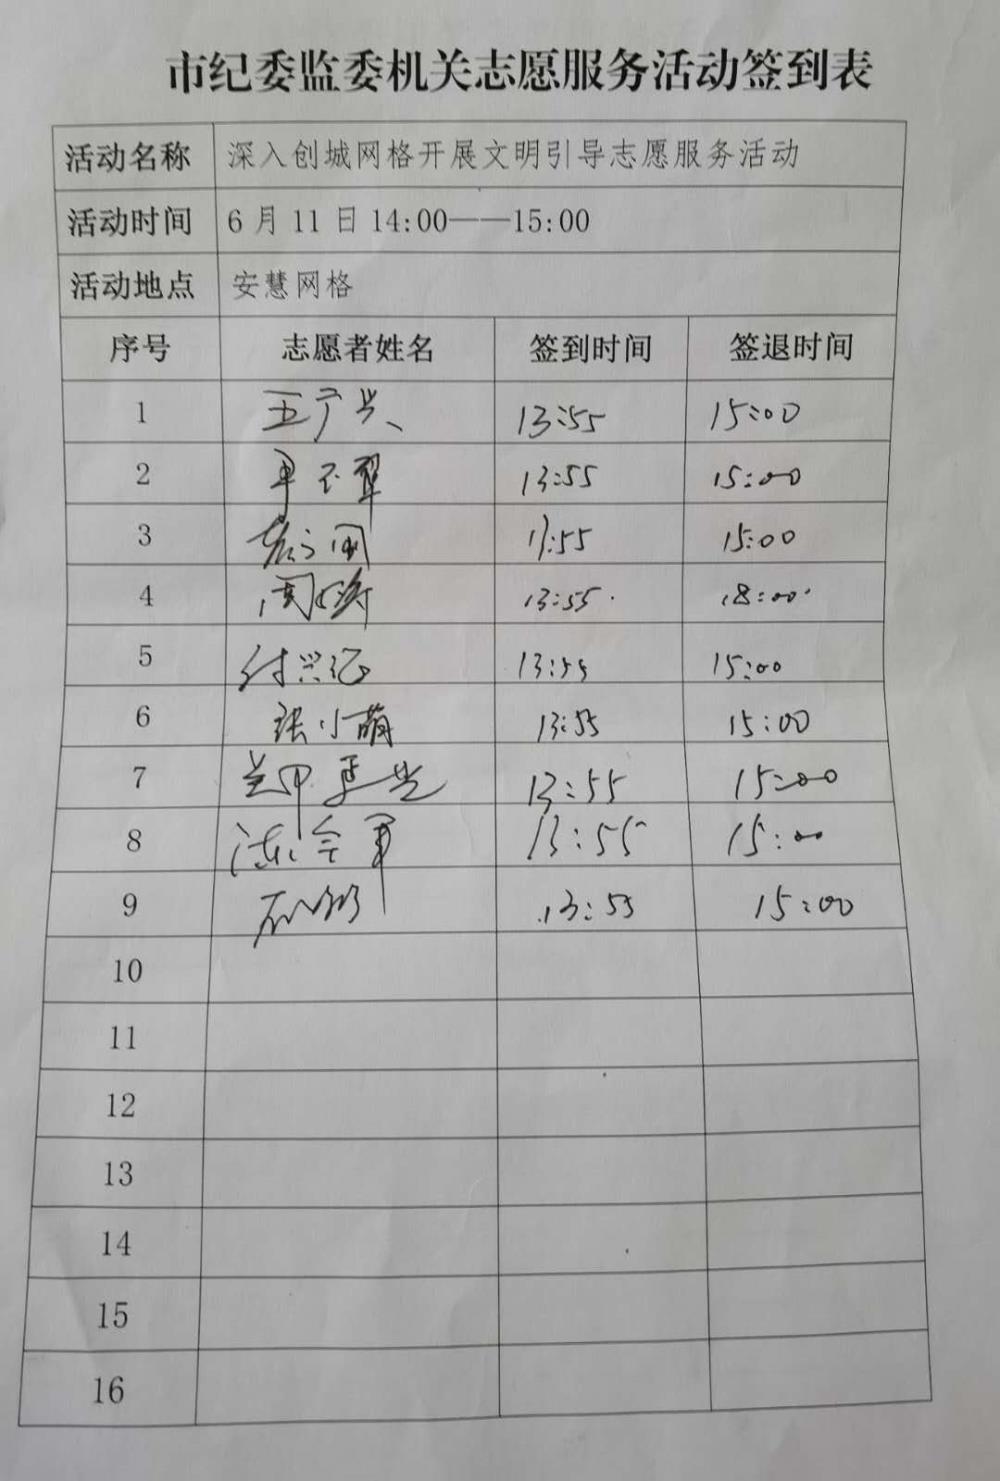 市纪委监委机关志愿服务活动签到表
活动名称 深入创城网格开展文明引导志愿服务活动
活动时间 6月11日14:00——15:00
活动地点 安慧网格
序号 志愿者姓名 签到时间 签退时间
1 13:55 15:00
2 13:55 15:00
3 13:55 15:00
4 13:55 18:00
5 13:55 15:00
6 张小萌 13:55 15:00
7 13:55 15:00
8 13:55 15:00
9 13:55 15:00
10
11
12
13
14
15
16